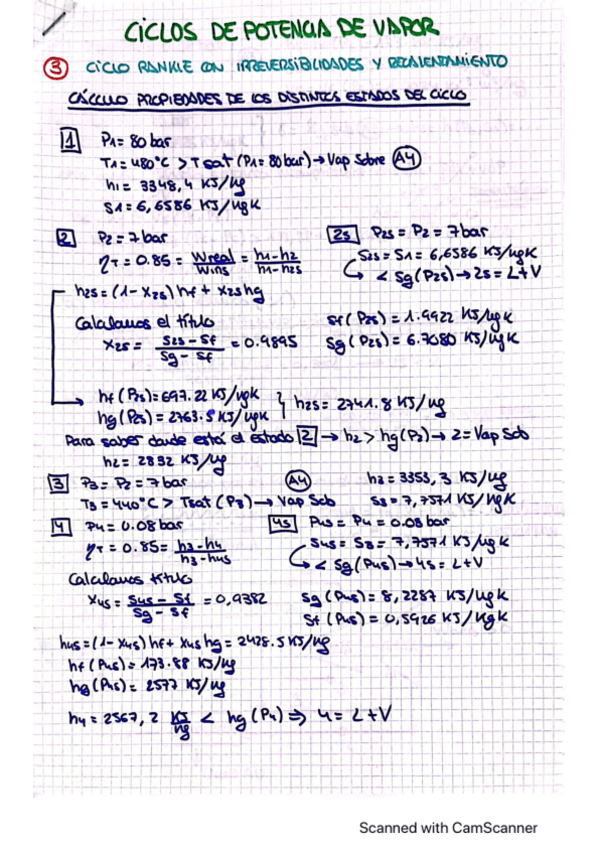 CICLOS DE POTENCIA DE VAPOR
③ CICLO RANKLE CON IRREVERSIBILIDADES Y RECALENTAMIENTO
CÁLCULO PROPIEDADES DE LOS DISTINTOS ESTADOS DEL CICLO
1 P1= 80 bar
T1= 480°C > Tsat (P1= 80 bar) → Vap Sobre A4
h1 = 3348,4 KJ/kg
S1 = 6,6586 KJ/kgK
2 P2 = 7 bar
ηT = 0.85 = Wreal/Wins = h1-h2/h1-h2s
2s P2s = P2 = 7 bar
S2s = S1 = 6,6586 KJ/kgK
< Sg(P2s) → 2s = L+V
h2s = (1-X2s) hf + X2s hg
Calculamos el título
X2s = S2s - Sf/Sg - Sf = 0.9895
Sf (P2s) = 1.9922 KJ/kgK
Sg (P2s) = 6.7080 KJ/kgK
hf (P2s) = 697.22 KJ/kgK
hg (P2s) = 2763.5 KJ/kgK } h2s = 2741.8 KJ/kg
Para saber donde está el estado 2 → h2 > hg(P2) → 2 = Vap Sob
h2 = 2832 KJ/kg
3 P3 = P2 = 7 bar A4 h3 = 3353,3 KJ/kg
T3 = 440°C > Tsat (P3) → Vap Sob S3 = 7,7571 KJ/kgK
4 P4 = 0.08 bar
ηT = 0.85 = h3-h4/h3-h4s
4s P4s = P4 = 0.08 bar
S4s = S3 = 7,7571 KJ/kgK
< Sg (P4s) → 4s = L+V
Calculamos título
X4s = S4s - Sf/Sg - Sf = 0,9382
Sg (P4s) = 8,2287 KJ/kgK
Sf (P4s) = 0,5926 KJ/kgK
h4s = (1-X4s) hf + X4s hg = 2428.5 KJ/kg
hf (P4s) = 173.88 KJ/kg
hg (P4s) = 2577 KJ/kg
h4 = 2567,2 KJ/kg < hg (P4) ⇒ 4 = L+V
Scanned with CamScanner